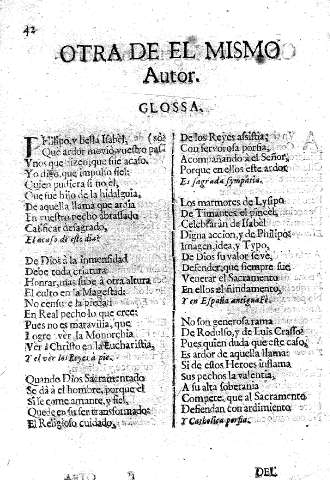 42
OTRA DE EL MISMO
Autor.
GLOSSA.
Filipo, y bella Isabel, (sos
Que ardor moviò vuestro pas-
Vnos que dizen, que fue acaso,
Yo digo, que impulso fiel:
Quien pudiera si no el,
Que fue hijo de la hidalguia,
De aquella llama que ardia
En vuestro pecho abrassado
Calificar de sagrado,
El acaso de este dia?
De Dios à la inmensidad
Debe toda criatura
Honrar, mas sube à otra altura
El culto en la Magestad:
No censure la piedad
En Real pecho lo que cree:
Pues no es maravilla, que
Logre ver la Monorchia
Ver à Christo en la Eucharistia,
Y el ver los Reyes à pie.
Quando Dios Sacramentado
Se dà à el hombre, porque el
Si le come amante, y fiel,
Quede en su ser transformado:
El Religioso cuidado,
De los Reyes assistia;
Con fervorosa porfia,
Acompañando à el Señor,
Porque en ellos este ardor
Es sagrada sympatia.
Los marmores de Lysipo
De Timantes el pincel,
Celebraràn de Isabel
Digna accion, y de Philipo:
Imagen, idea, y Typo,
De Dios su valor se ve,
Defender, que siempre fue
Venerar el Sacramento
En ellos el fundamento,
Y en España antigua Fè.
No son generosa rama
De Rodolfo, y de Luis Crasso?
Pues quien duda que este caso,
Es ardor de aquella llama:
Si de estos Heroes inflama
Sus pechos la valentia,
A su alta soberania
Compete, que al Sacramento
Defiendan con ardimiento
Y Catholica porfia.
DEL